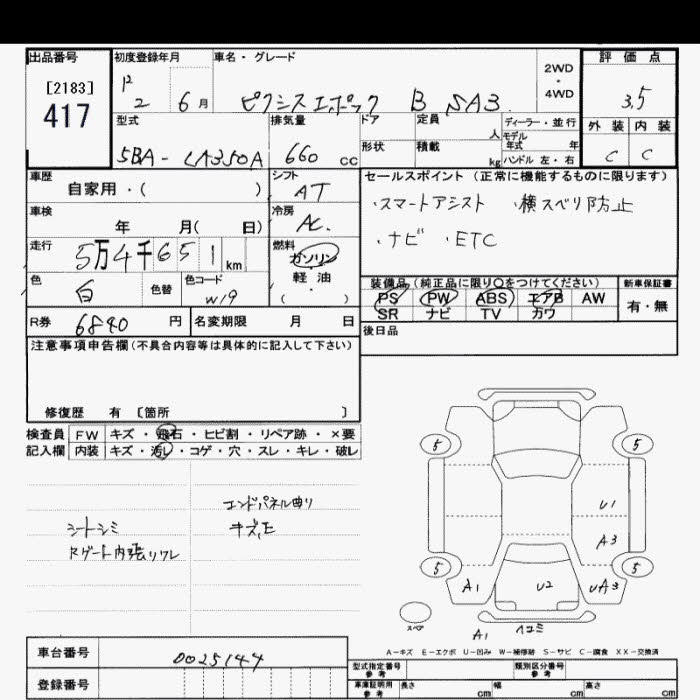 出品番号 初度登録年月 車名・グレード 2WD・4WD 評価点
[2183]
417
R 2 6月 ピクシスエポック B SAⅢ 3.5
型式 排気量 ドア 定員 人 ディーラー・並行 外装 内装
モデル年式 年
5BA-LA350A 660 cc 形状 積載 kg ハンドル 左・右 C C
車歴 シフト セールスポイント (正常に機能するものに限ります)
自家用・( ) AT ・スマートアシスト ・横スベリ防止
車検 冷房
年 月( 日) AC ・ナビ ・ETC
走行 燃料
5万4千651km ガソリン
軽油
( )
色 色替 色コード 装備品 (純正品に限り○をつけてください) 新車保証書
白 W19 PS PW ABS エアB AW 有・無
SR ナビ TV カワ
R券 6840 円 名変期限 月 日 後日品
注意事項申告欄 (不具合内容等は具体的に記入して下さい)
修復歴 有 [箇所 ]
検査員 FW キズ・飛石・ヒビ割・リペア跡・×要
記入欄 内装 キズ・汚レ・コゲ・穴・スレ・キレ・破レ
エンドパネル曲り
シートシミ キズ、E
Rゲート内張りワレ
5 5
U1
A3
5 5
A1 U2 UA3
スペア A1 ヘコミ
A-キズ E-エクボ U-凹み W-補修跡 S-サビ C-腐食 XX-交換済
車台番号 0025144 型式指定番号 参考 類別区分番号 参考
登録番号 車庫証明用 参考 長さ cm 幅 cm 高さ cm